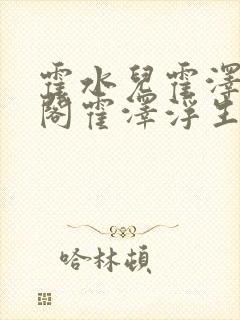 霍水兒霍澤
閣霍澤浮生
哈林頓